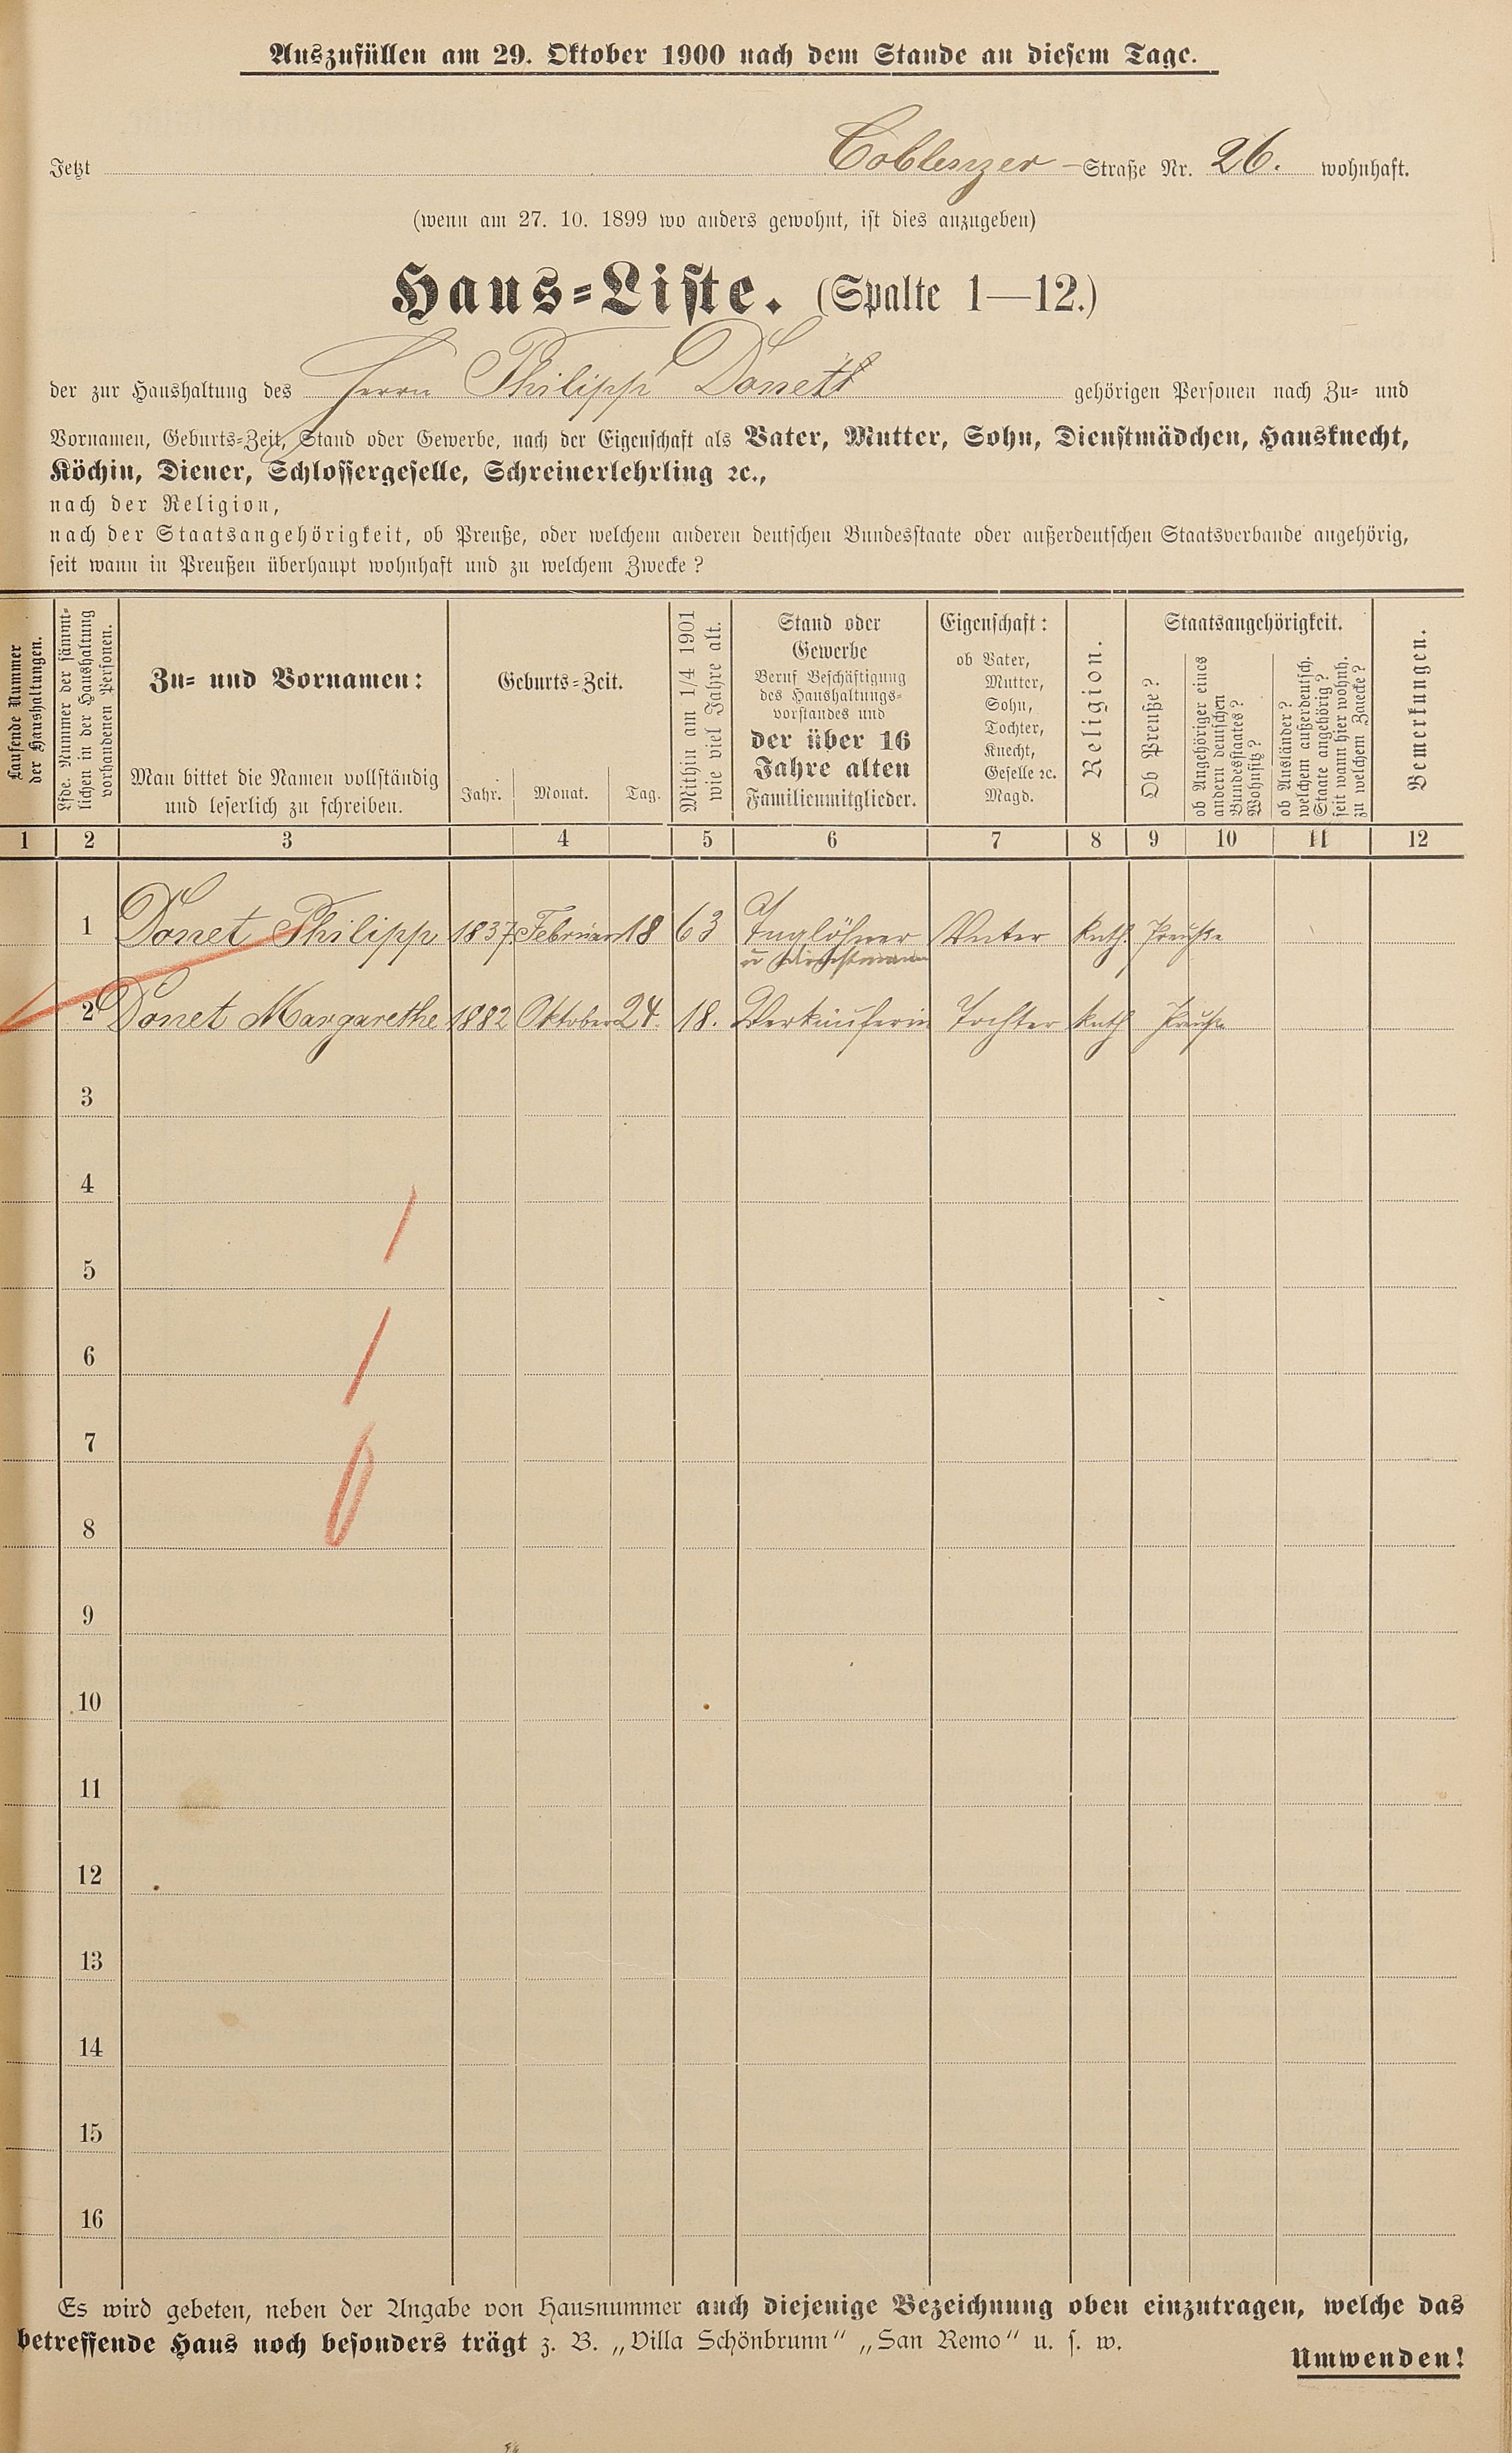 Auszufüllen am 29. Oktober 1900 nach dem Stande an diesem Tage.
Jetzt Coblenzer-Straße Nr. 26. wohnhaft.
(wenn am 27. 10. 1899 wo anders gewohnt, ist dies anzugeben)
Haus-Liste. (Spalte 1—12.)
der zur Haushaltung des Herrn Philipp Donett gehörigen Personen nach Zu- und
Vornamen, Geburts-Zeit, Stand oder Gewerbe, nach der Eigenschaft als Vater, Mutter, Sohn, Dienstmädchen, Hausknecht,
Köchin, Diener, Schlossergeselle, Schreinerlehrling ꝛc.,
nach der Religion,
nach der Staatsangehörigkeit, ob Preuße, oder welchem anderen deutschen Bundesstaate oder außerdeutschen Staatsverbande angehörig,
seit wann in Preußen überhaupt wohnhaft und zu welchem Zwecke?
Laufende Nummer
der Haushaltungen.
Lfde. Nummer der sämmt-
lichen in der Haushaltung
vorhandenen Personen.
Zu- und Vornamen:
Man bittet die Namen vollständig
und leserlich zu schreiben.
Geburts-Zeit.
Jahr. Monat. Tag.
Mithin am 1/4 1901
wie viel Jahre alt.
Stand oder
Gewerbe
Beruf Beschäftigung
des Haushaltungs-
vorstandes und
der über 16
Jahre alten
Familienmitglieder.
Eigenschaft:
ob Vater,
Mutter,
Sohn,
Tochter,
Knecht,
Geselle ꝛc.
Magd.
Religion.
Staatsangehörigkeit.
Ob Preuße?
ob Angehöriger eines
andern deutschen
Bundesstaates?
Wohnsitz?
ob Ausländer?
welchem außerdeutsch.
Staate angehörig?
seit wann hier wohnh.
zu welchem Zwecke?
Bemerkungen.
1 2 3 4 5 6 7 8 9 10 11 12
1 Donet Philipp 1837 Februar 18 63 Taglöhner Vater kath. Preuße
u
2 Donet Margarethe 1882 Oktober 24. 18. Verkäuferin Tochter kath Preuße
3
4
5
6
7
8
9
10
11
12
13
14
15
16
Es wird gebeten, neben der Angabe von Hausnummer auch diejenige Bezeichnung oben einzutragen, welche das
betreffende Haus noch besonders trägt z. B. „Villa Schönbrunn“ „San Remo“ u. s. w.
Umwenden!